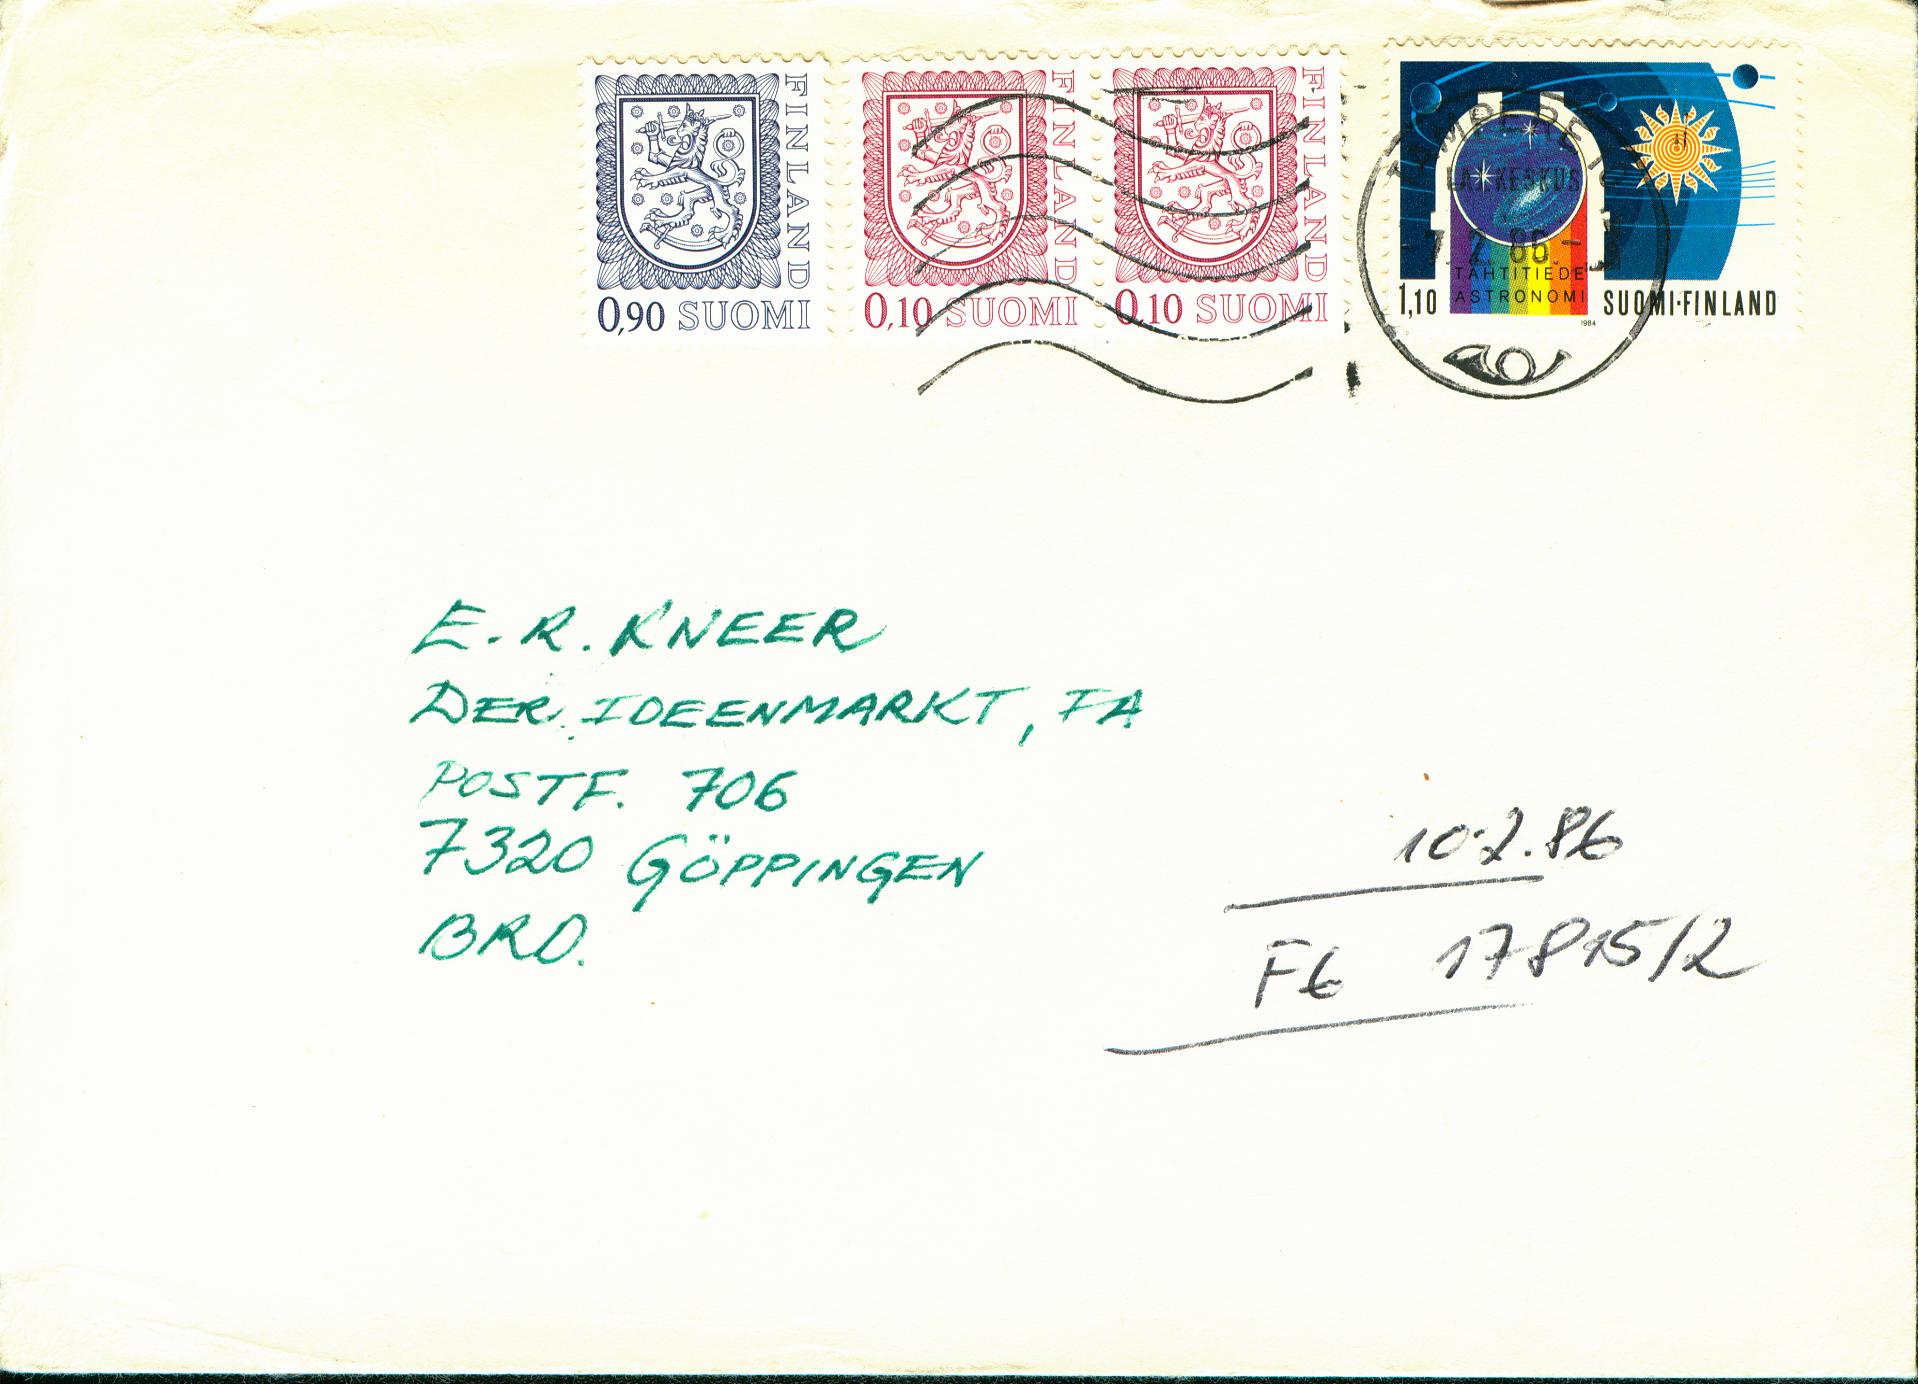 FINLAND
0,90 SUOMI
FINLAND
0,10 SUOMI
FINLAND
0,10 SUOMI
TAMPERE 10
LAJ.KESKUS
-7.2.86.-
TÄHTITIEDE
ASTRONOMI
1,10
SUOMI·FINLAND
1984
E. R. KNEER
DER IDEENMARKT, FA
POSTF. 706
7320 GÖPPINGEN
BRD.
10.2.86
F6 17815/2